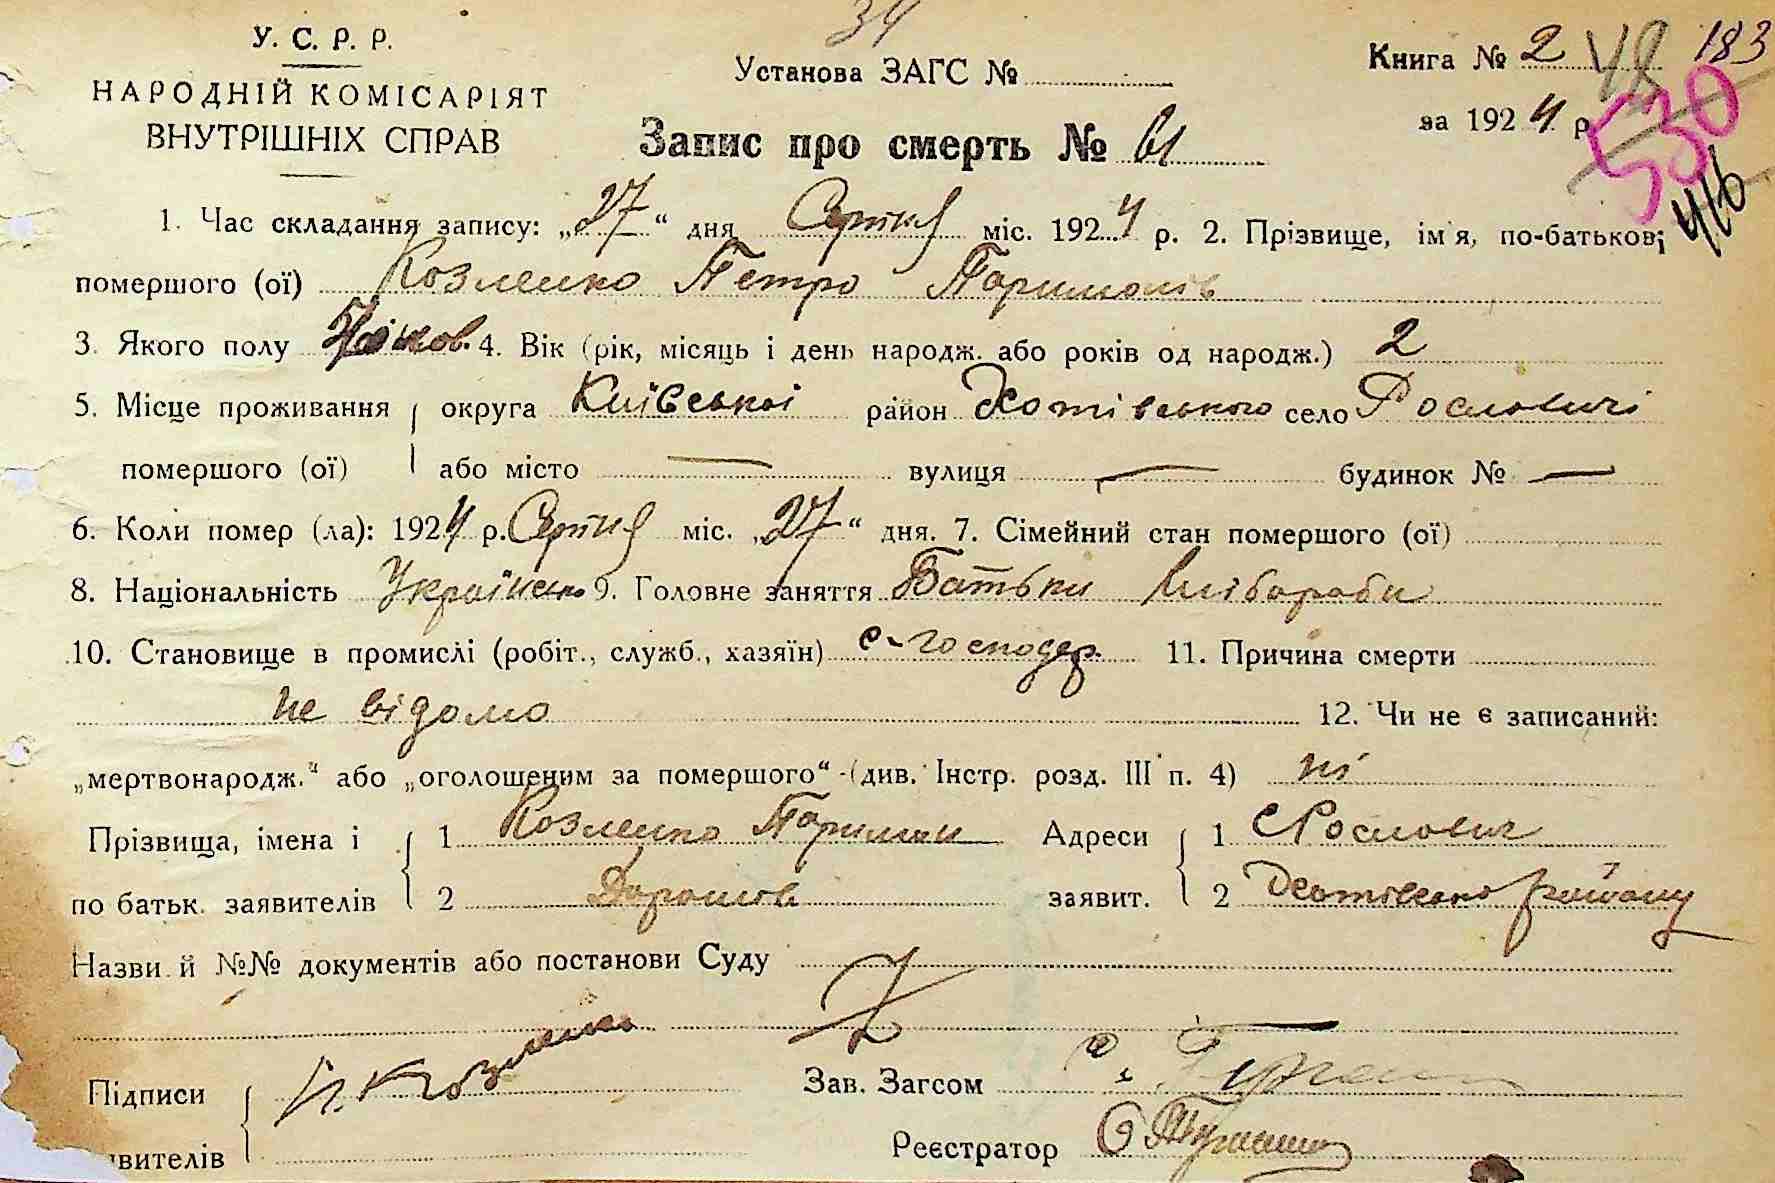 34
У. С. Р. Р.
НАРОДНІЙ КОМІСАРІЯТ
ВНУТРІШНІХ СПРАВ
Установа ЗАГС №
Запис про смерть № 61
Книга № 2 48 183
за 1924 р.
530
416
1. Час складання запису: „27“ дня Серпня міс. 1924 р. 2. Прізвище, ім'я, по-батькові
помершого (ої) Козленко Петро
3. Якого полу чолов. 4. Вік (рік, місяць і день народж. або років од народж.) 2
5. Місце проживання округа Київської район Хотівського село Рословичі
помершого (ої) або місто — вулиця — будинок № —
6. Коли помер (ла): 1924 р. Серпня міс. „27“ дня. 7. Сімейний стан помершого (ої)
8. Національність Українець 9. Головне заняття Батьки хлібороби
10. Становище в промислі (робіт., служб., хазяїн) с-господар. 11. Причина смерти
не відомо 12. Чи не є записаний:
„мертвонародж.“ або „оголошеним за помершого“ (див. Інстр. розд. III п. 4) ні
Прізвища, імена і 1 Козленко Адреси 1 с Рословичі
по батьк. заявителів 2 заявит. 2 Хотівсько району
Назви й №№ документів або постанови Суду
Підписи П. Козленко Зав. Загсом
явителів Реєстратор